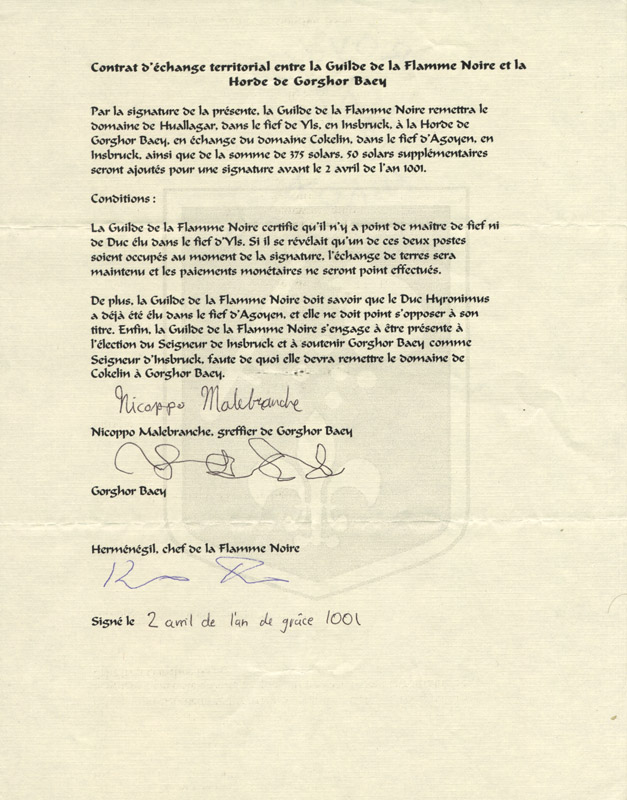 Contrat d'échange territorial entre la Guilde de la Flamme Noire et la
Horde de Gorghor Baey
Par la signature de la présente, la Guilde de la Flamme Noire remettra le
domaine de Huallagar, dans le fief de Yls, en Insbruck, à la Horde de
Gorghor Baey, en échange du domaine Cokelin, dans le fief d'Agoyen, en
Insbruck, ainsi que de la somme de 375 solars. 50 solars supplémentaires
seront ajoutés pour une signature avant le 2 avril de l'an 1001.
Conditions :
La Guilde de la Flamme Noire certifie qu'il n'y a point de maître de fief ni
de Duc élu dans le fief d'Yls. Si il se révélait qu'un de ces deux postes
soient occupés au moment de la signature, l'échange de terres sera
maintenu et les paiements monétaires ne seront point effectués.
De plus, la Guilde de la Flamme Noire doit savoir que le Duc Hyronimus
a déjà été élu dans le fief d'Agoyen, et elle ne doit point s'opposer à son
titre. Enfin, la Guilde de la Flamme Noire s'engage à être présente à
l'élection du Seigneur de Insbruck et à soutenir Gorghor Baey comme
Seigneur d'Insbruck, faute de quoi elle devra remettre le domaine de
Cokelin à Gorghor Baey.
Nicoppo Malebranche
Nicoppo Malebranche, greffier de Gorghor Baey
Gorghor Baey
Herménégil, chef de la Flamme Noire
Signé le 2 avril de l'an de grâce 1001